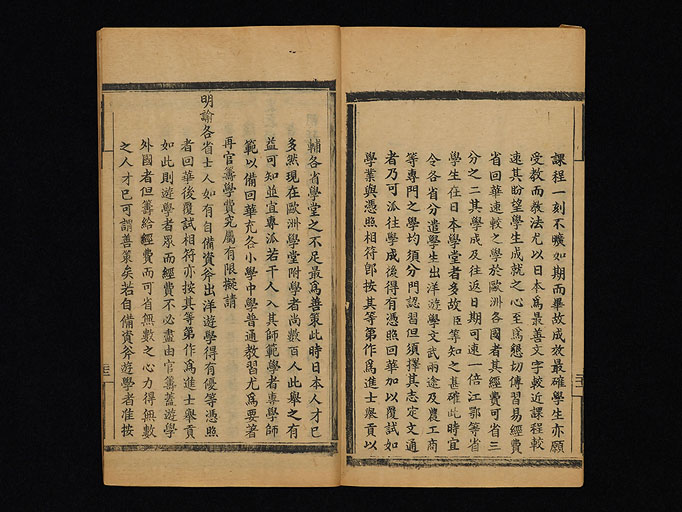 課程一刻不曠如期而畢故成效最確學生亦願
受教而教法尤以日本爲最善文字較近課程較
速其盼望學生成就之心至爲懇切傳習易經費
省回華速較之學於歐洲各國者其經費可省三
分之二其學成及往返日期可速一倍江鄂等省
學生在日本學堂者多故臣等知之甚確此時宜
令各省分遣學生出洋遊學文武兩途及農工商
等專門之學均須分門認習但須擇其志定文通
者乃可派往學成後得有憑照回華加以覆試如
學業與憑照相符卽按其等第作爲進士舉貢以
輔各省學堂之不足最爲善策此時日本人才已
多然現在歐洲學堂附學者尚數百人此舉之有
益可知並宜專派若干人入其師範學者專學師
範以備回華充各小學中學普通教習尤爲要著
再官籌學費究屬有限擬請
明諭各省士人如有自備資斧出洋遊學得有優等憑照
者回華後覆試相符亦按其等第作爲進士舉貢
如此則遊學者眾而經費不必盡由官籌蓋遊學
外國者但籌給經費而可省無數之心力得無數
之人才已可謂善策矣若自備資斧遊學者准按